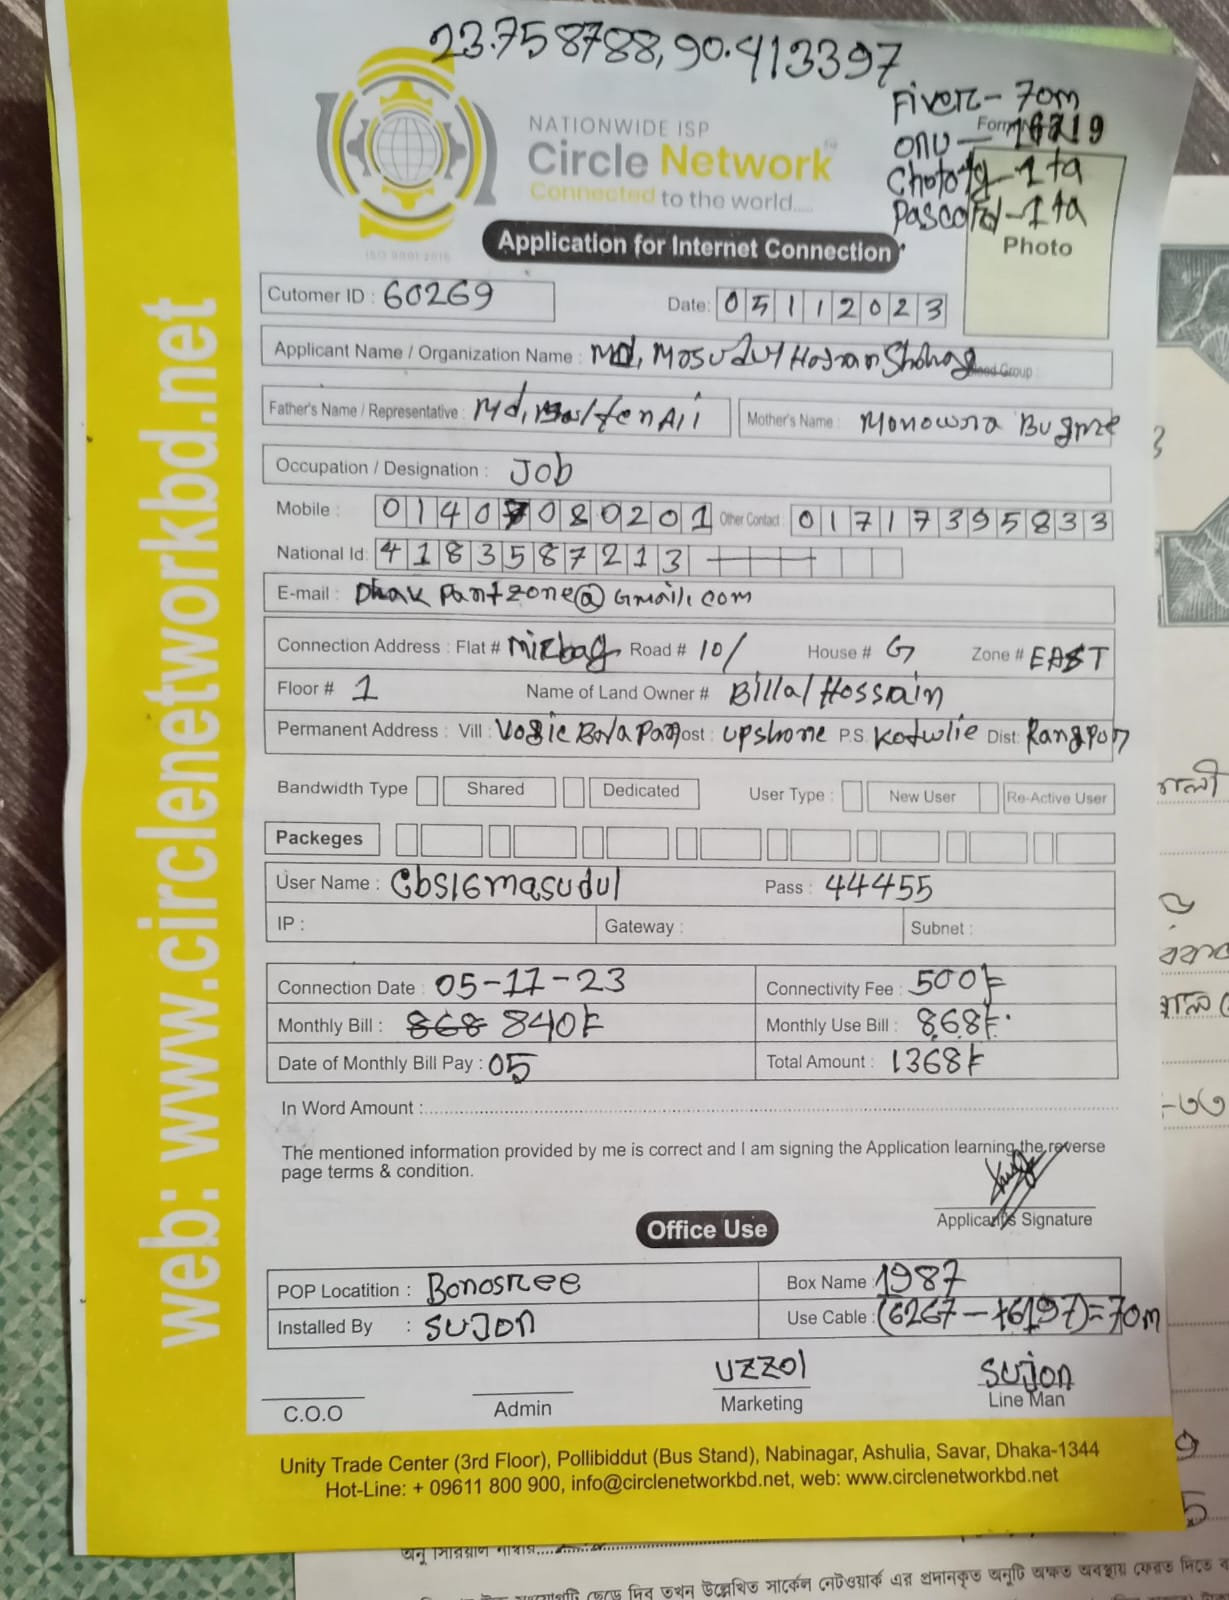 23.758788, 90.413397
Fiver - 70m
Form
ONU -
1 ta
- 1 ta
NATIONWIDE ISP
Circle Network
Connected to the world.....
ISO 9001:2015
Photo
Application for Internet Connection
Cutomer ID : 60269
Date: 05112023
Applicant Name / Organization Name : Md, Mosudul Shohag
Blood Group :
Father's Name / Representative : Md, Ali
Mother's Name : Monowra
Occupation / Designation : Job
Mobile : 01407080201 Other Contact : 01717395833
National Id: 4183587213
E-mail : Dhak Pantzone@Gmail.com
Connection Address : Flat # Mirbag Road # 10/ House # G Zone # EAST
Floor # 1 Name of Land Owner # Billal Hossain
Permanent Address : Vill : Post : P.S. Kotwlie Dist: Rangpur
Bandwidth Type Shared Dedicated User Type : New User Re-Active User
Packeges
User Name : Cbs16masudul Pass : 44455
IP : Gateway : Subnet :
Connection Date : 05-11-23 Connectivity Fee : 500/=
Monthly Bill : 868 840/= Monthly Use Bill : 868/=
Date of Monthly Bill Pay : 05 Total Amount : 1368/=
In Word Amount :
The mentioned information provided by me is correct and I am signing the Application learning the reverse
page terms & condition.
Applicant's Signature
Office Use
POP Locatition : Bonosree Box Name : 1987
Installed By : SUJON Use Cable : (6267 - 6197) = 70m
UZZOl Sujon
C.O.O Admin Marketing Line Man
Unity Trade Center (3rd Floor), Pollibiddut (Bus Stand), Nabinagar, Ashulia, Savar, Dhaka-1344
Hot-Line: + 09611 800 900, info@circlenetworkbd.net, web: www.circlenetworkbd.net
web: www.circlenetworkbd.net
অনু সিরিয়াল নাম্বার
ছেড়ে দিব তখন উল্লেখিত সার্কেল নেটওয়ার্ক এর প্রদানকৃত অনুটি অক্ষত অবস্থায় ফেরত দিতে